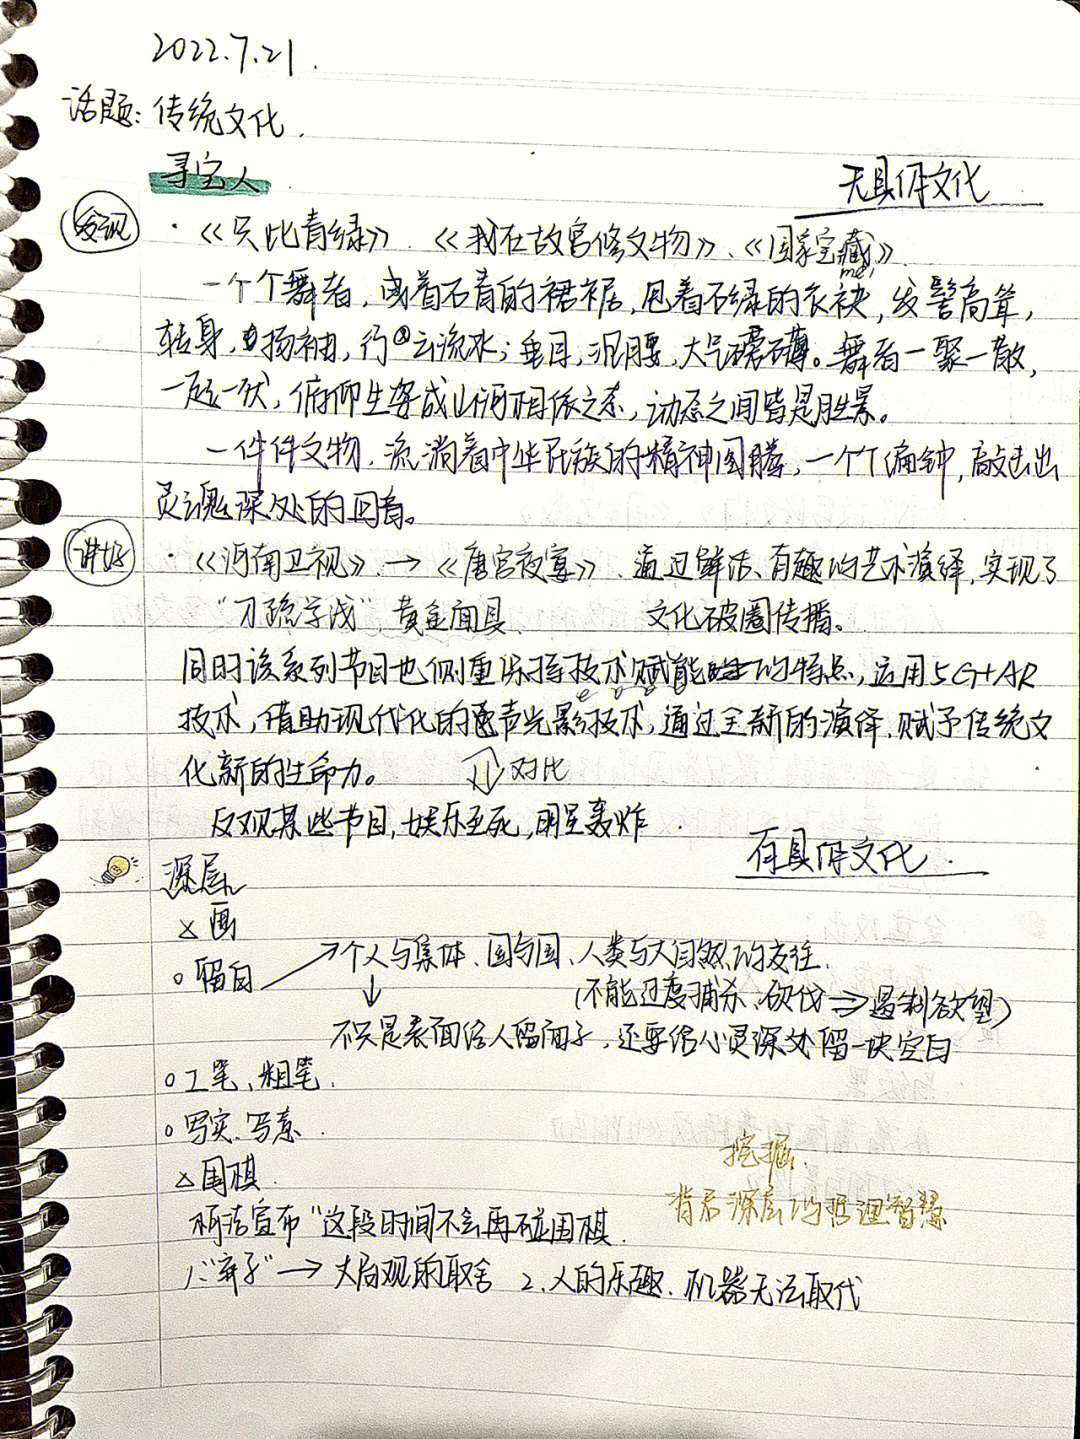 2022.7.21.
话题:传统文化.
寻宝人
无具体文化
发现 ·《只此青绿》.《我在故宫修文物》、《国家宝藏》
一个个舞者,或着石青的裙裾,甩着石绿的衣袂,发髻高耸,
mei
转身,扬袖,行云流水;垂目,沉腰,大气磅礴。舞者一聚一散,
一起一伏,俯仰生姿成山河相依之态,动态之间皆是胜景。
一件件文物,流淌着中华民族的精神图腾,一个个编钟,敲击出
灵魂深处的回音。
讲好 ·《河南卫视》→《唐宫夜宴》、通过鲜活、有趣的艺术演绎,实现了
"才疏学浅" 黄金面具 文化破圈传播。
同时该系列节目也侧重保持技术赋能的特点,运用5G+AR
技术,借助现代化的声光影技术,通过全新的演绎,赋予传统文
化新的生命力。 对比
反观某些节目,娱乐至死,明星轰炸.
有具体文化.
深层
×画
○留白 → 个人与集体、国与国、人类与大自然的交往.
↓ (不能过度捕杀、砍伐⇒遏制欲望)
不只是表面给人留面子,还要给心灵深处留一块空白
○工笔、粗笔.
○写实、写意.
挖掘.
×围棋.
背后深层的哲理智慧
柯洁宣布"这段时间不会再碰围棋.
1."弃子"→大局观的取舍 2.人的乐趣.机器无法取代